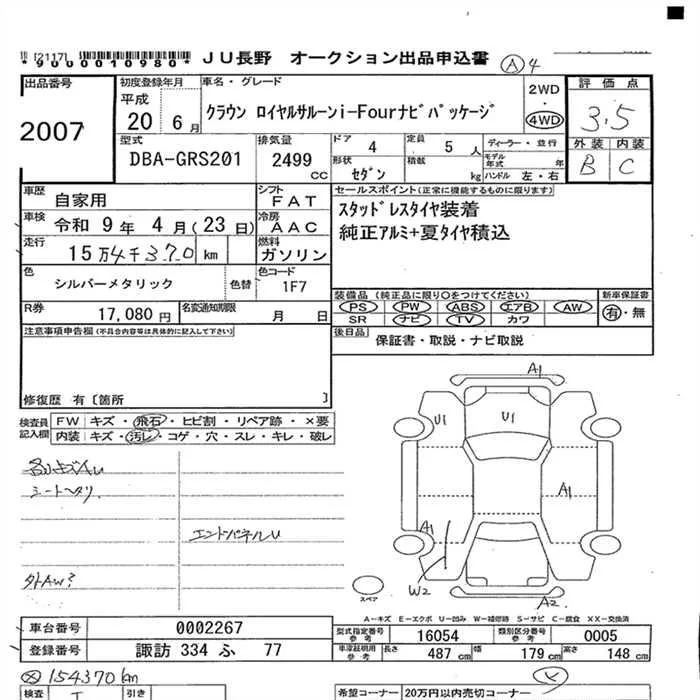 [2117] *9000010980* JU長野 オークション出品申込書 Ⓐ4
出品番号 2007
初度登録年月 平成 20 6月
車名・グレード クラウン ロイヤルサルーンi-Fourナビパッケージ
2WD ・ 4WD
評価点 3.5
外装 B 内装 C
型式 DBA-GRS201
排気量 2499 CC
ドア 4 定員 5 人
形状 セダン 積載 kg
ディーラー・並行
モデル年式 年
ハンドル 左・右
車歴 自家用
シフト FAT
車検 令和 9年 4月(23日)
冷房 AAC
走行 15万4千370 km
燃料 ガソリン
色 シルバーメタリック 色替
色コード 1F7
R券 17,080円
名変通知期限 月 日
セールスポイント(正常に機能するものに限ります)
スタッドレスタイヤ装着
純正アルミ+夏タイヤ積込
装備品(純正品に限り〇をつけてください)
PS PW ABS エアB AW
SR ナビ TV カワ
新車保証書 有・無
後日品 保証書・取説・ナビ取説
注意事項申告欄(不具合内容等は具体的に記入して下さい)
修復歴 有〔箇所 〕
検査員記入欄
FW キズ・飛石・ヒビ割・リペア跡・×要
内装 キズ・汚レ・コゲ・穴・スレ・キレ・破レ
シートヘタリ
エンドパネルU
外AW?
A1
U1
U1
A1
A1
W2
A2
スペア
A-キズ E-エクボ U-凹み W-補修跡 S-サビ C-腐食 XX-交換済
車台番号 0002267
登録番号 諏訪 334 ふ 77
型式指定番号参考 16054
類別区分番号参考 0005
車庫証明用参考 長さ 487cm 幅 179cm 高さ 148cm
154370km
検査 引き
希望コーナー 20万円以内売切コーナー